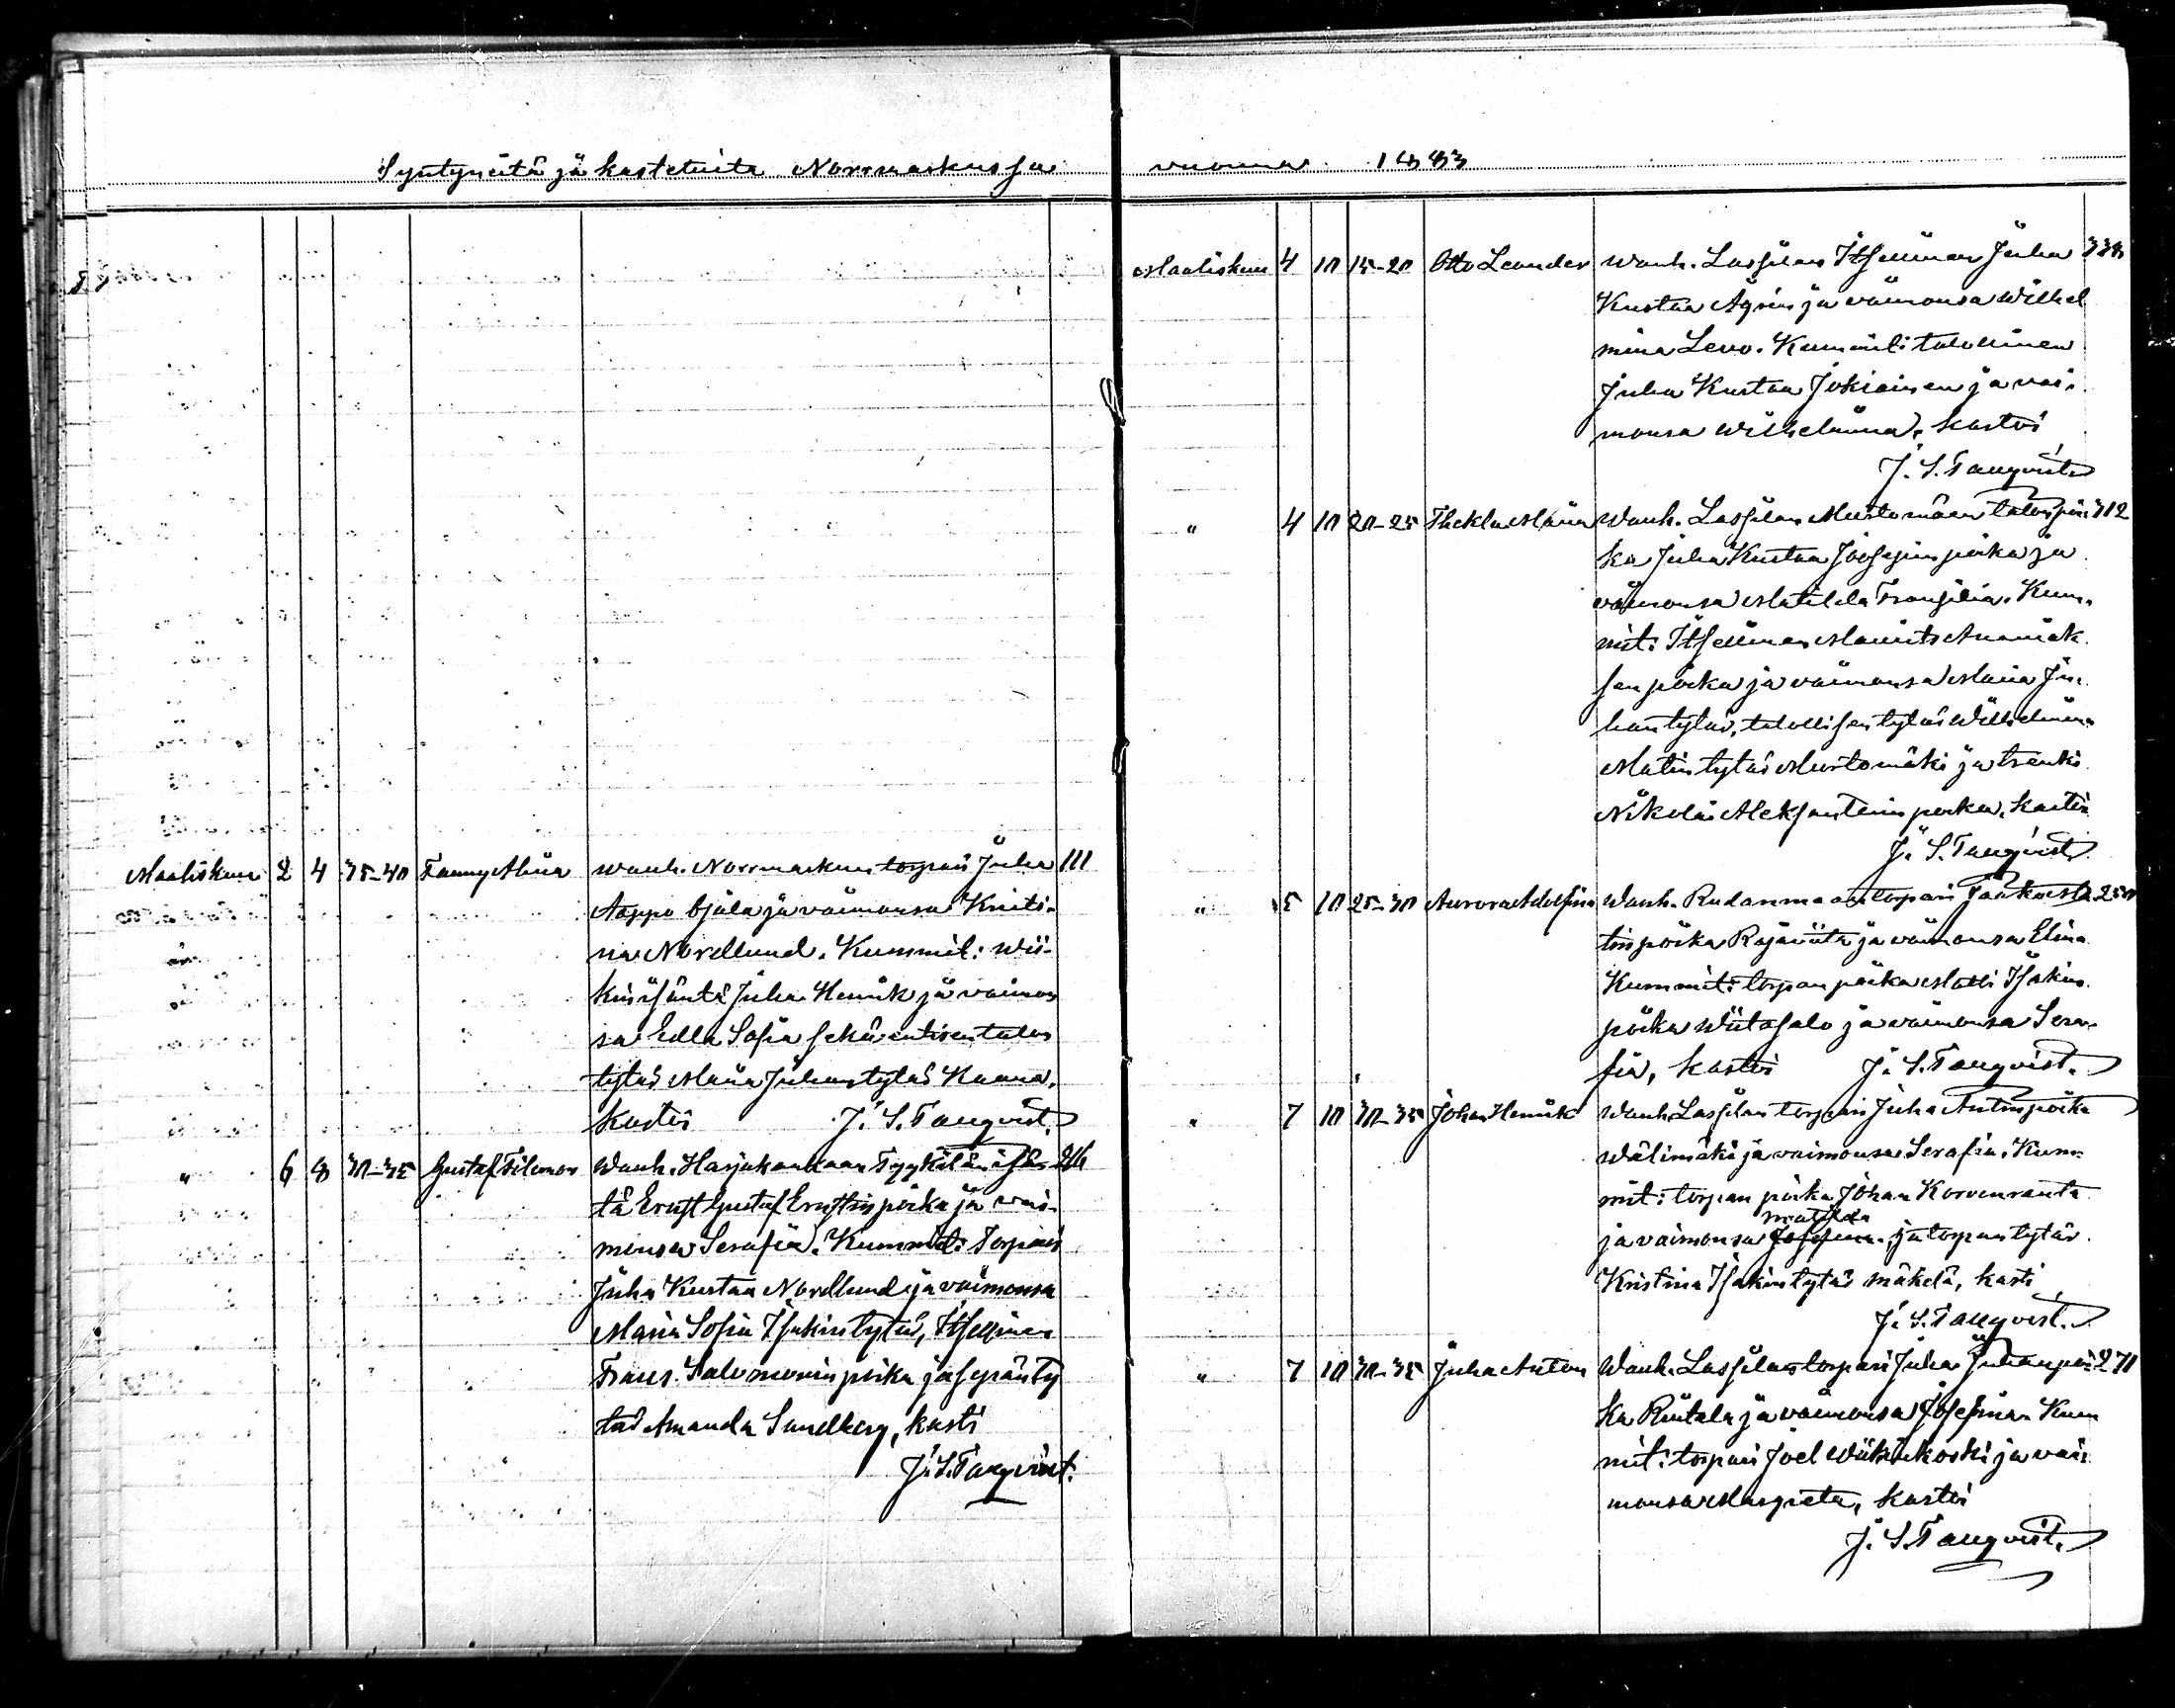 Syntyneitä ja kastetuita Norrmarkussa vuonna 1883
Maaliskuu 2 4 35-40 Fanny Maria wanh. Norrmarkun torpari Juha 111
Aappo Ojala ja vaimonsa Kristi-
na Nordlund. Kummit:
isäntä Juha Henrik ja vaimon
sa Edla Sofia sekä entisen talon
tytär Maria Juhantytär
Kastoi J. S. Tauqvist.
" 6 8 30-35 Gustaf Filemon Wanh. Harjakankaan Tyykilän isän- 216
tä Ernst Gustaf Ernstinpoika ja vai-
monsa Serafia. Kummit: Torpari
Juha Kustaa Nordlund ja vaimonsa
Maria Sofia Isakintytär, Itsellinen
Frans Salomoninpoika ja sepänty
tär Amanda Sundberg, kasti
J. S. Tauqvist.
Maaliskuu 4 10 15-20 Otto Leander Wanh. Lassilan Itsellinen Juha 338
Kustaa ja vaimonsa Wilhel
mina Levo. Kummit: talollinen
Juha Kustaa Jokiainen ja vai-
monsa Wilhelmina, kastoi
J. S. Tauqvist
" 4 10 20-25 Thekla Maria Wanh. Lassilan Mustomäen talonpoi- 312
ka Juha Kustaa Joosepinpoika ja
vaimonsa Matilda Fransilia. Kum-
mit: Itsellinen Maurits Ananiak
sen poika ja vaimonsa Maria Ju-
hantytär, talollisen tytär Wilhelmina
Matintytär Mustomäki ja trenki
Nikolai Aleksanterin poika, kastoi
J. S. Tauqvist
" 5 10 25-30 Aurora Adolfina Wanh. Rudanmaan torpari 250
tinpoika Rajaniita ja vaimonsa Elina
Kummit: torpan poika Matti Isakin
poika Wiitasalo ja vaimonsa Sera-
fia, kastoi J. S. Tauqvist.
" 7 10 30-35 Johan Henrik Wanh. Lassilan torpari Juha Antinpoika
Wälimäki ja vaimonsa Serafia. Kum-
mit: torpan poika Johan Korvenranta
matilda
ja vaimonsa Josefina ja torpantytär
Kristina Isakintytär Mäkelä, kasti
J. S. Tauqvist.
" 7 10 30-35 Juha Anton Wanh. Lassilan torpari Juha Juhanpoi- 270
ka Rintala ja vaimonsa Josefina. Kum
mit: torpari Joel Wähäkoski ja vai-
monsa Margreta, kastoi
J. S. Tauqvist.